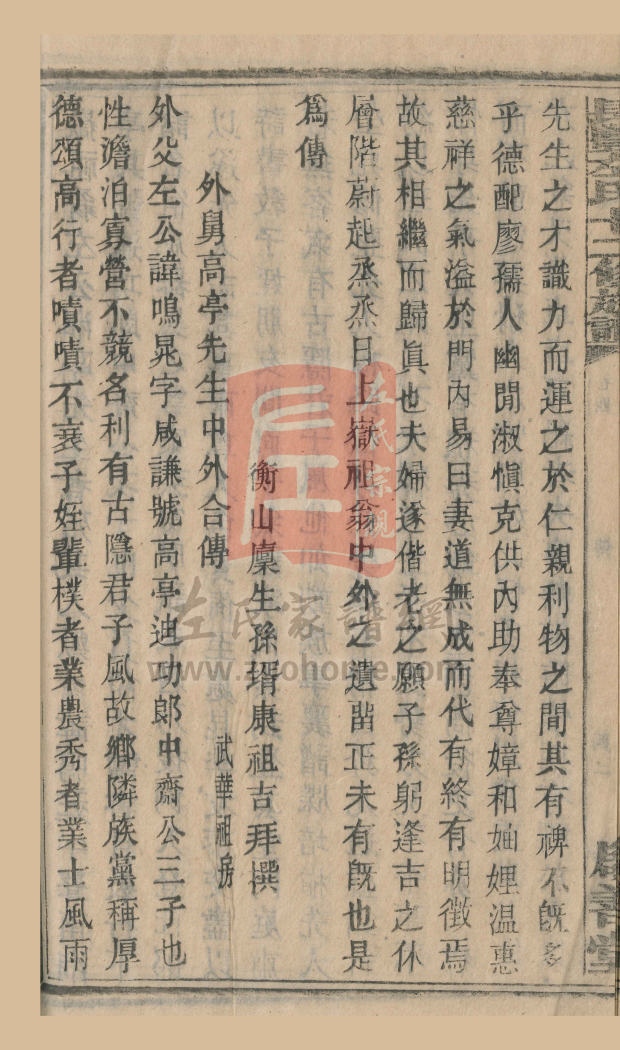 先生之才識力而運之於仁親利物之間其有裨不旣多
乎德配廖孺人幽閒淑愼克供內助奉尊嫜和妯娌温惠
慈祥之氣溢於門內易曰妻道無成而代有終有明徵焉
故其相繼而歸眞也夫婦遂偕老之願子孫躬逢吉之休
層階蔚起烝烝日上嶽祖翁中外之遺畱正未有旣也是
爲傳
衡山廩生孫壻康祖吉拜撰
外舅高亭先生中外合傳
武華祖房
外父左公諱鳴晃字咸謙號高亭迪功郎中齋公三子也
性澹泊寡營不競名利有古隱君子風故鄉隣族黨稱厚
德頌高行者嘖嘖不衰子姪輩樸者業農秀者業士風雨
左氏家譜網
www.zuohome.com
左氏宗親